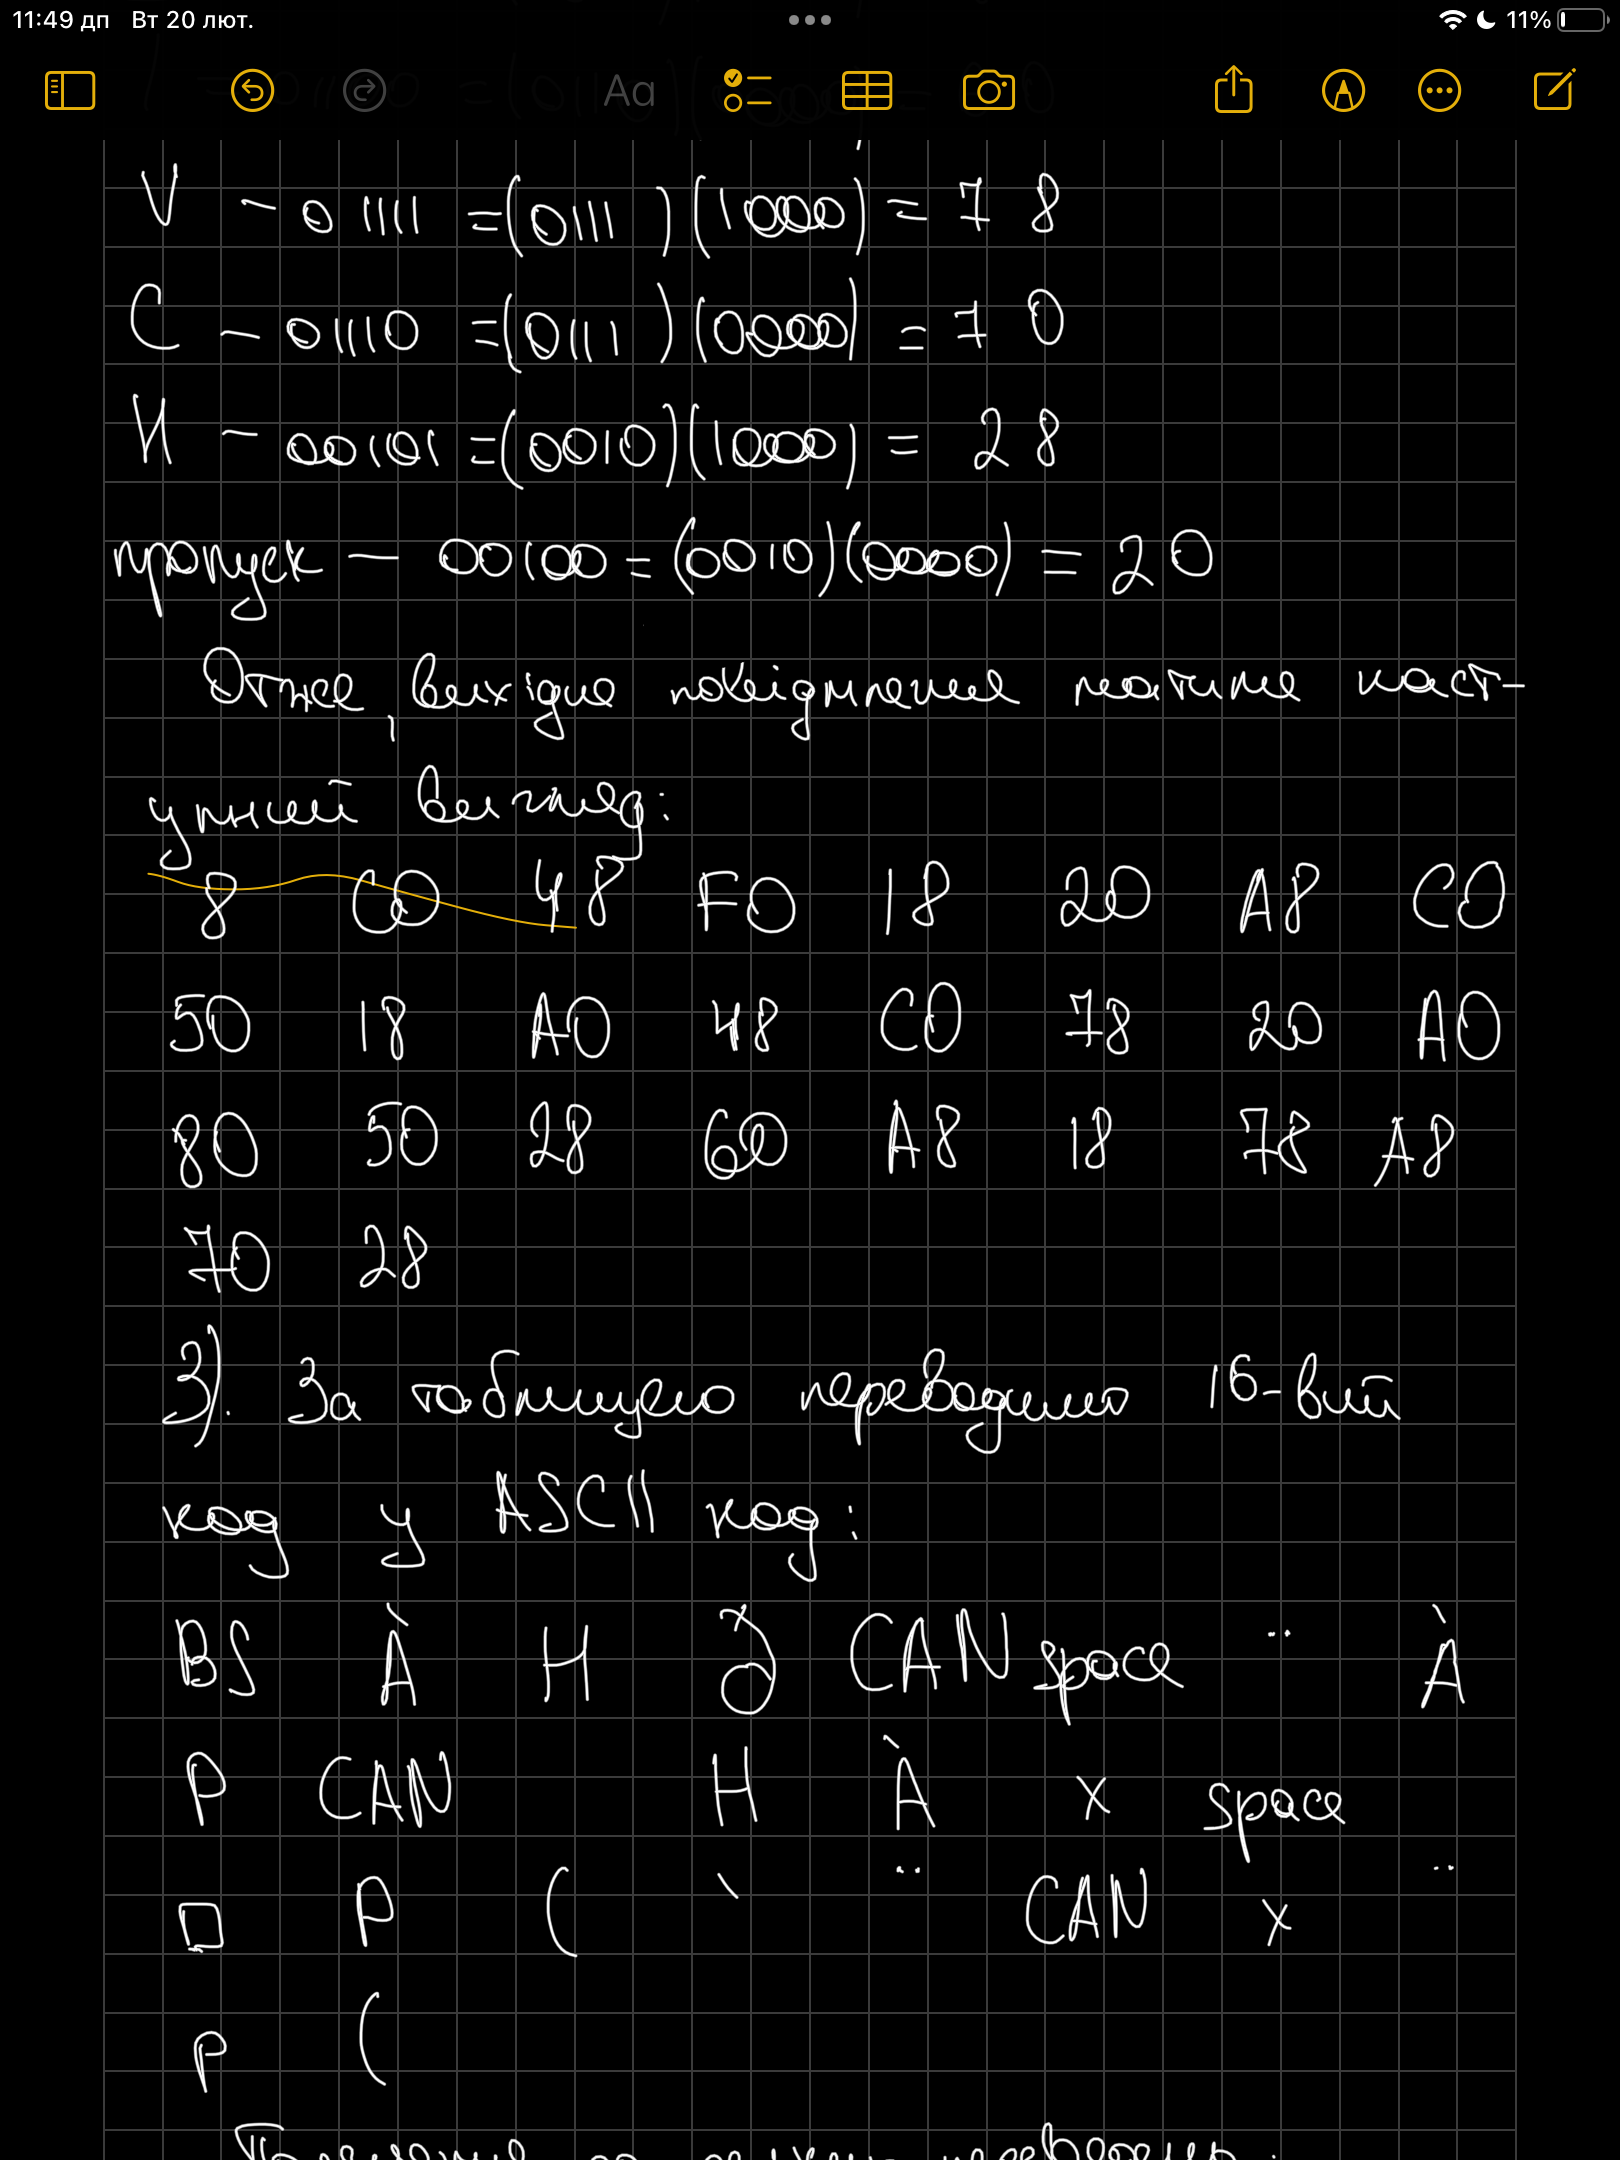 11:49 дп Вт 20 лют. 11%
Aa
V – 01111 = (0111)(1000) = 78
C – 01110 = (0111)(0000) = 70
И – 00101 = (0010)(1000) = 28
пропуск – 00100 = (0010)(0000) = 20
Отже, вихідне повідомлення матиме наст-
упний вигляд:
8 C0 48 F0 18 20 A8 C0
50 18 A0 48 C0 78 20 A0
80 50 28 60 A8 18 78 A8
70 28
3). За таблицею переводимо 16-вий
код у ASCII код:
BS À H ð CAN space ¨ À
P CAN H À x space
□ P ( ` ¨ CAN x ¨
p (